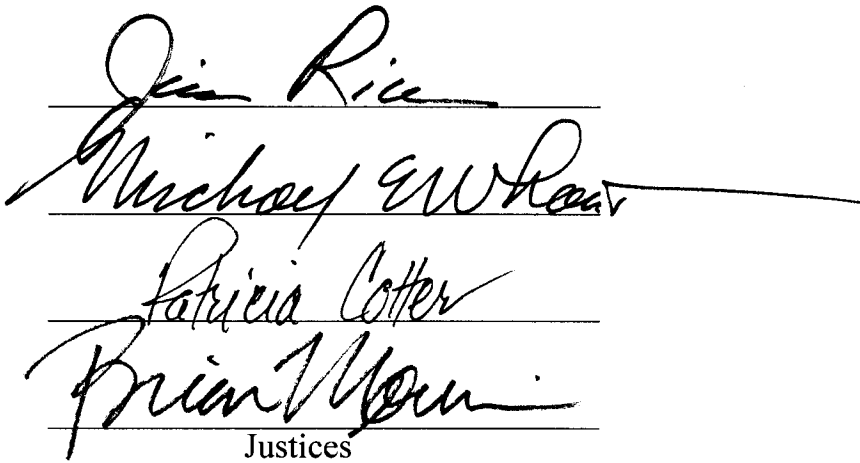 Jim Rice
Michael E Wheat
Patricia Cotter
Brian Morris
Justices